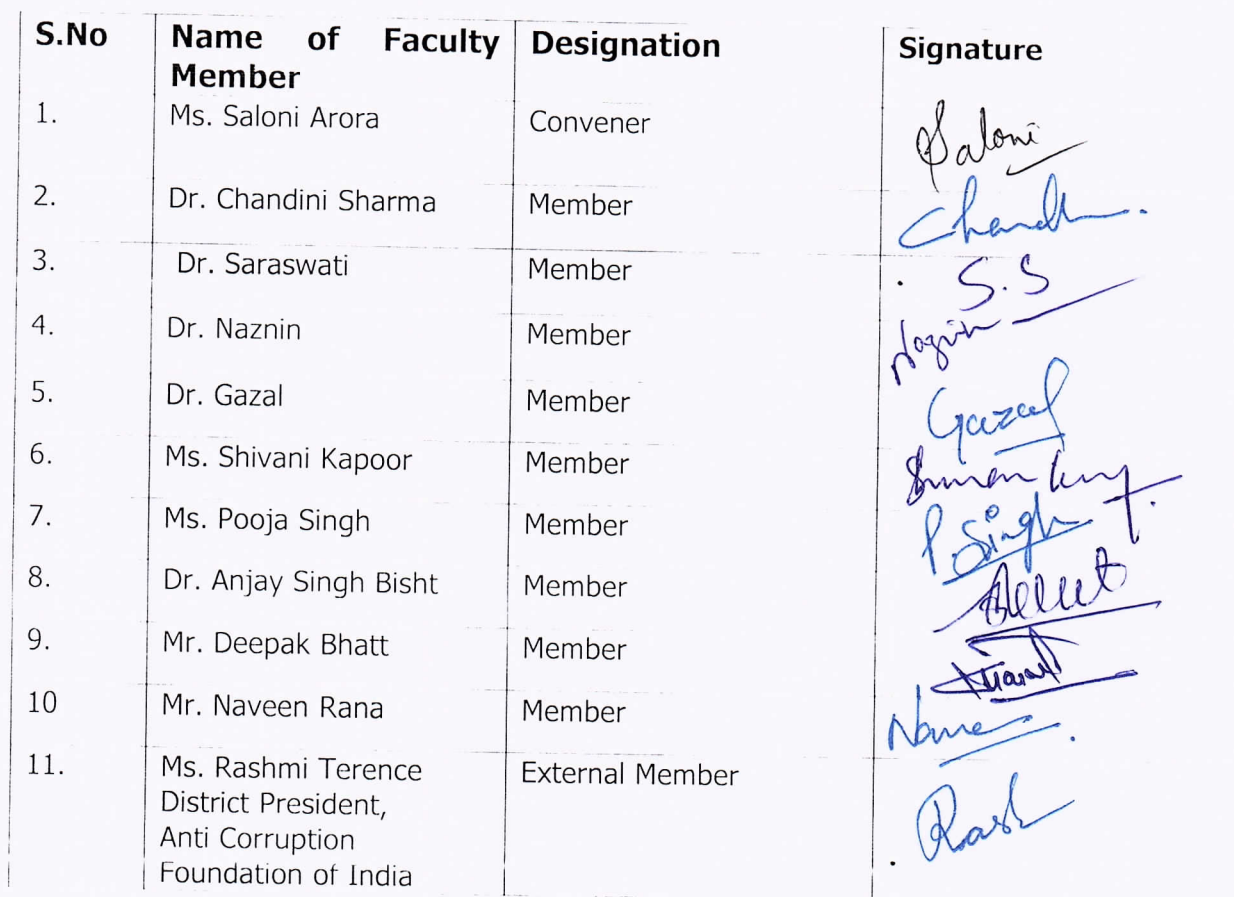 S.No Name of Faculty Designation Signature
Member
1. Ms. Saloni Arora Convener Saloni
2. Dr. Chandini Sharma Member
3. Dr. Saraswati Member S.S
4. Dr. Naznin Member
5. Dr. Gazal Member Gazal
6. Ms. Shivani Kapoor Member
7. Ms. Pooja Singh Member P Singh
8. Dr. Anjay Singh Bisht Member
9. Mr. Deepak Bhatt Member
10 Mr. Naveen Rana Member
11. Ms. Rashmi Terence External Member
District President,
Anti Corruption
Foundation of India